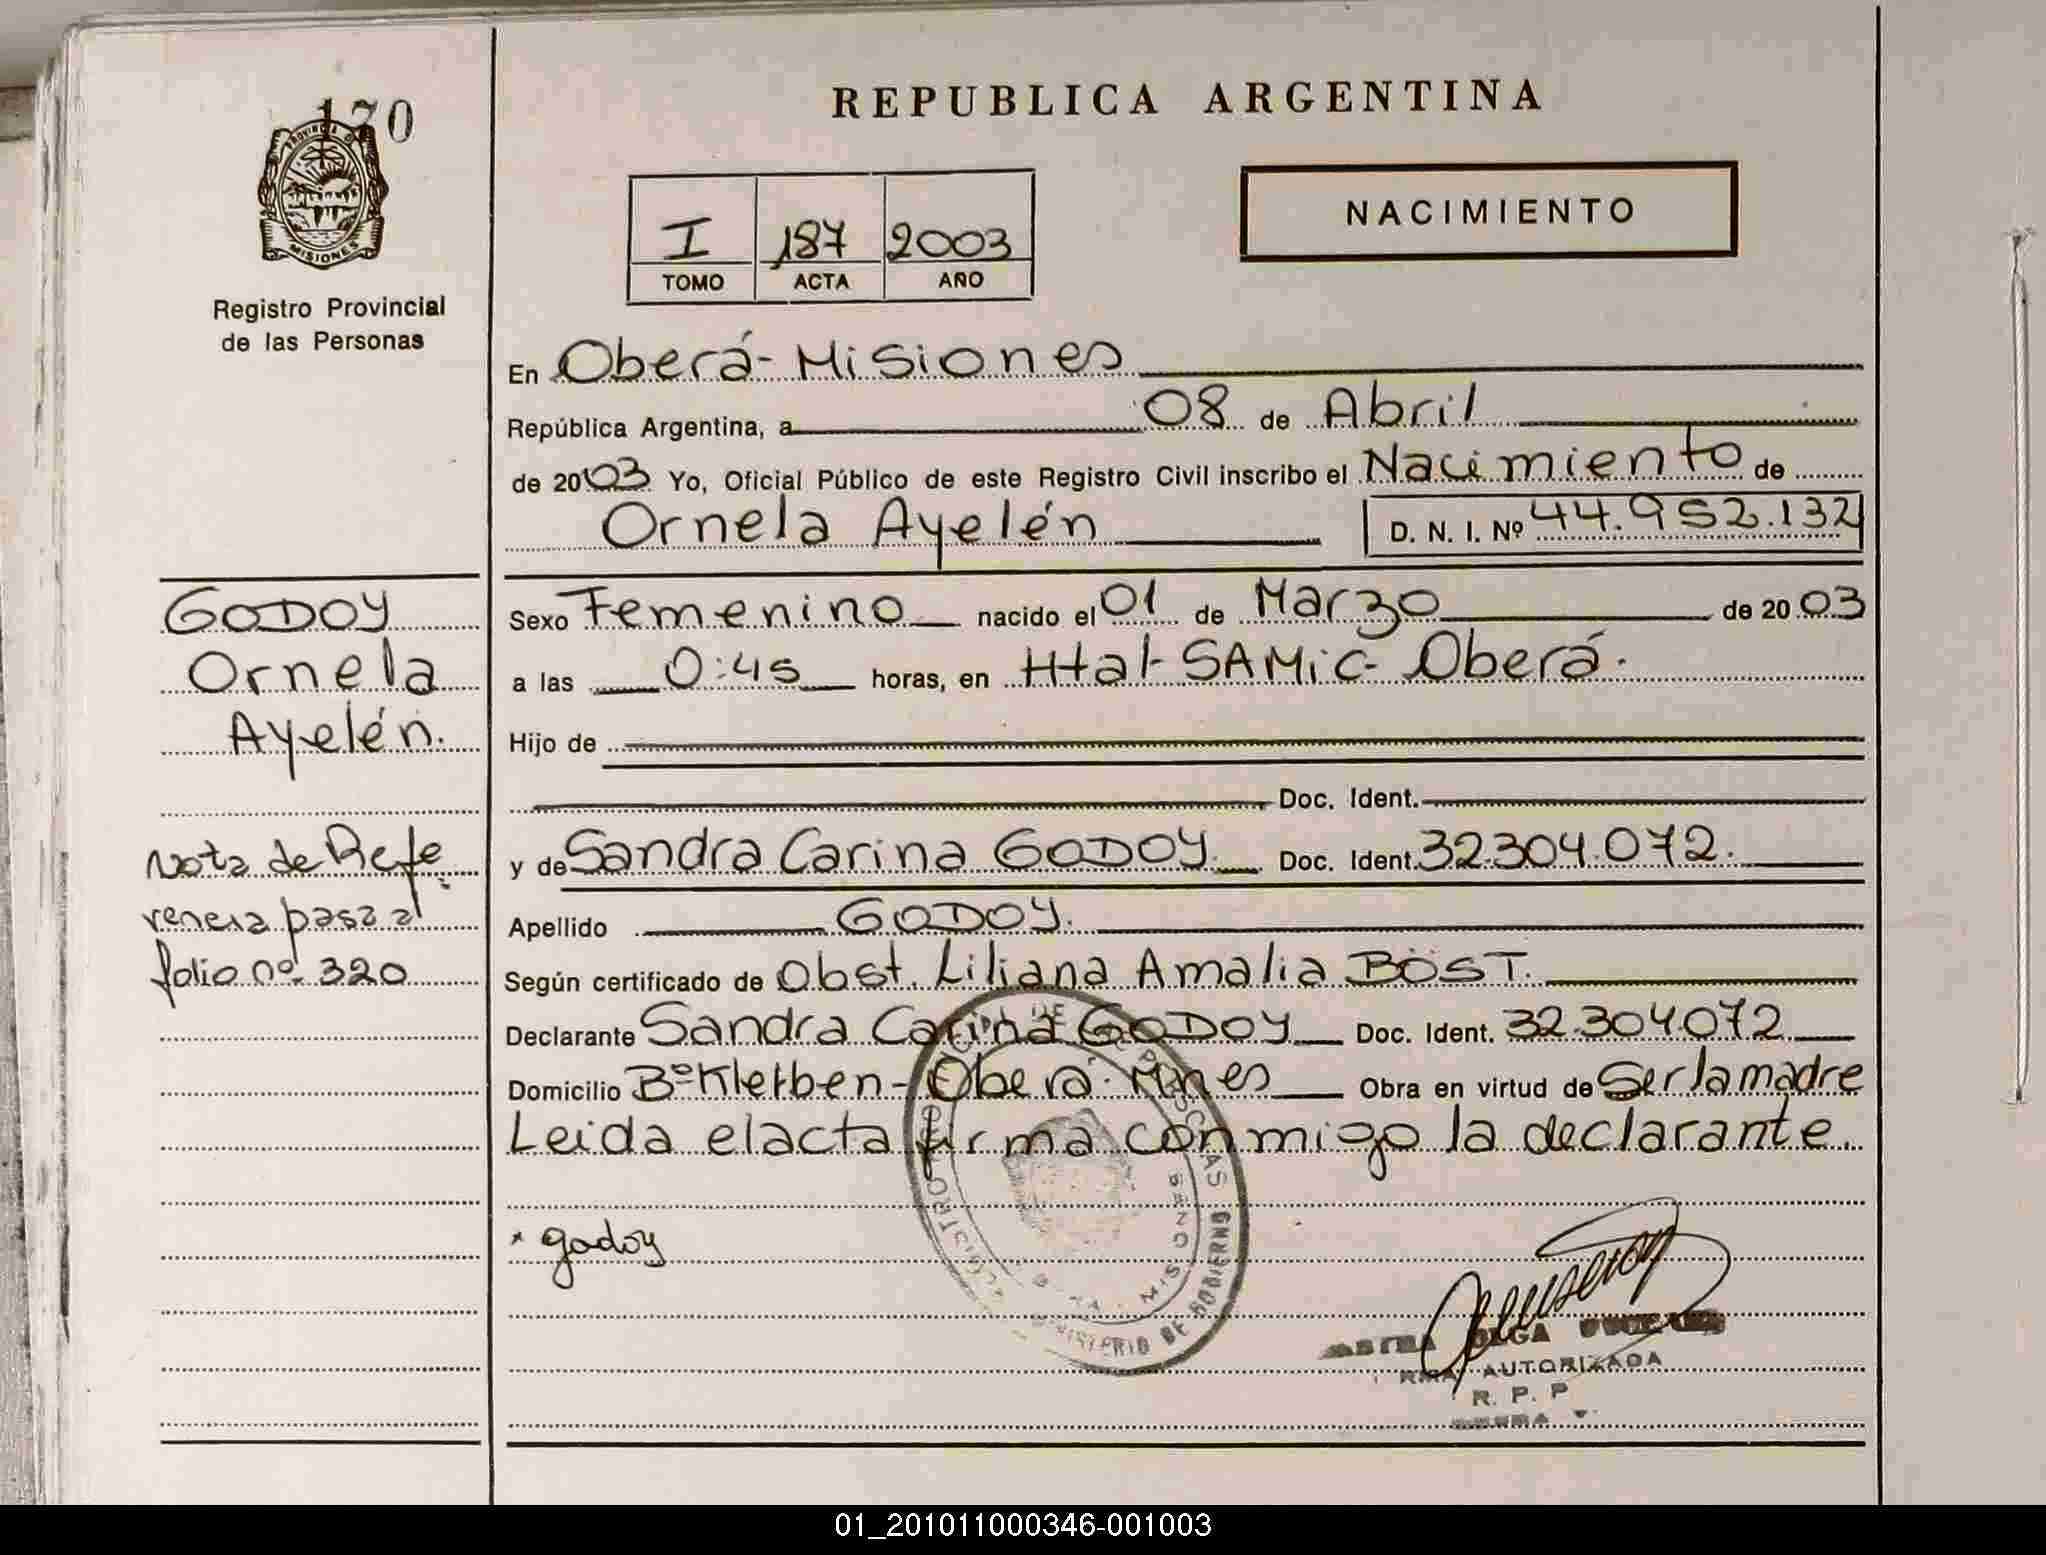 170
PROVINCIA DE
MISIONES
Registro Provincial
de las Personas
REPUBLICA ARGENTINA
I 187 2003
TOMO ACTA AÑO
NACIMIENTO
En Oberá - Misiones
República Argentina, a 08 de Abril
de 2003 Yo, Oficial Público de este Registro Civil inscribo el Nacimiento de
Ornela Ayelén D. N. I. Nº 44.952.132
Sexo Femenino nacido el 01 de Marzo de 2003
a las 0:45 horas, en Htal - SAMiC - Oberá.
Hijo de
Doc. Ident.
y de Sandra Carina GODOY. Doc. Ident. 32.304.072.
Apellido GODOY.
Según certificado de Obst. Liliana Amalia BÖST.
Declarante Sandra Carina GODOY Doc. Ident. 32.304.072
Domicilio Bº Kletben - Oberá. Mnes Obra en virtud de Ser la madre
Leida el acta firma conmigo la declarante.
* godoy
GODOY
Ornela
Ayelén.
Nota de Refe
rencia pasa al
folio nº 320
MINISTERIO DE GOBIERNO
OLGA
AUTORIZADA
R. P. P
01_201011000346-001003